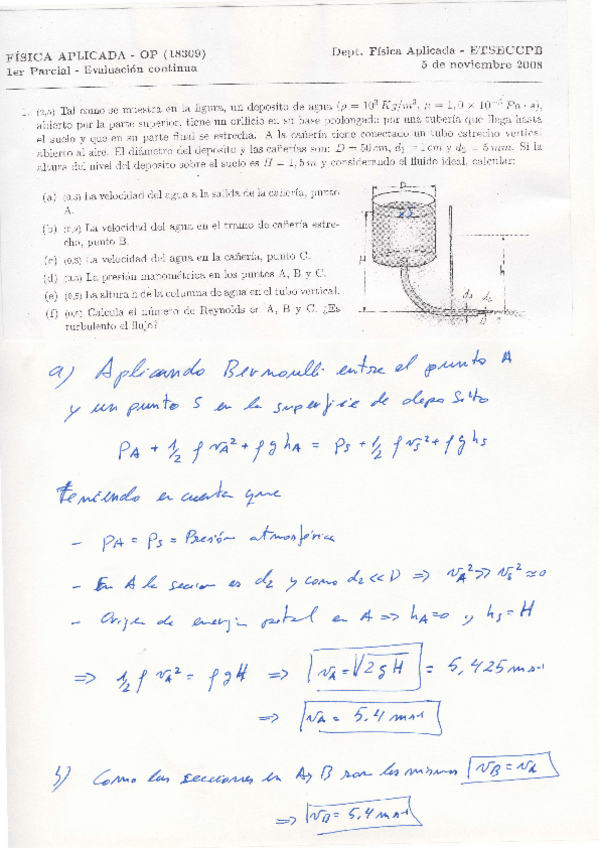 FÍSICA APLICADA - OP (18309)
Dept. Física Aplicada - ETSECCPB
1er Parcial - Evaluación continua
5 de noviembre 2008
1. (2,5) Tal como se muestra en la figura, un deposito de agua (ρ = 10³ Kg/m³, μ = 1,0 × 10⁻³ Pa · s),
abierto por la parte superior, tiene un orificio en su base prolongado por una tubería que llega hasta
el suelo y que en su parte final se estrecha. A la cañería tiene conectado un tubo estrecho vertical
abierto al aire. El diámetro del deposito y las cañerías son: D = 50 cm, d₁ = 1 cm y d₂ = 5 mm. Si la
altura del nivel del deposito sobre el suelo es H = 1,5 m y considerando el fluido ideal, calcular:
(a) (0,5) La velocidad del agua a la salida de la cañería, punto
A.
(b) La velocidad del agua en el tramo de cañería estre-
cho, punto B.
(c) (0,5) La velocidad del agua en la cañería, punto C.
(d) La presión manométrica en los puntos A, B y C.
(e) (0,5) La altura h de la columna de agua en el tubo vertical.
(f) Calcula el número de Reynolds en A, B y C. ¿Es
turbulento el flujo?
D
S
H
h
d₁
d₂
a) Aplicando Bernoulli entre el punto A
y un punto S en la superficie de deposito
pA + 1/2 ρ vA² + ρ g hA = pS + 1/2 ρ vS² + ρ g hS
Teniendo en cuenta que
- pA = pS = Presión atmosférica
- En A la seccion es d₂ y como d₂ << D ⇒ vA² >> vS² ≈ 0
- Origen de energia potal en A ⇒ hA = 0 y hS = H
⇒ 1/2 ρ vA² = ρ g H ⇒ vA = √2gH = 5,425 ms⁻¹
⇒ vA = 5,4 ms⁻¹
b) Como las secciones en A y B son las mismas vB = vA
⇒ vB = 5,4 ms⁻¹